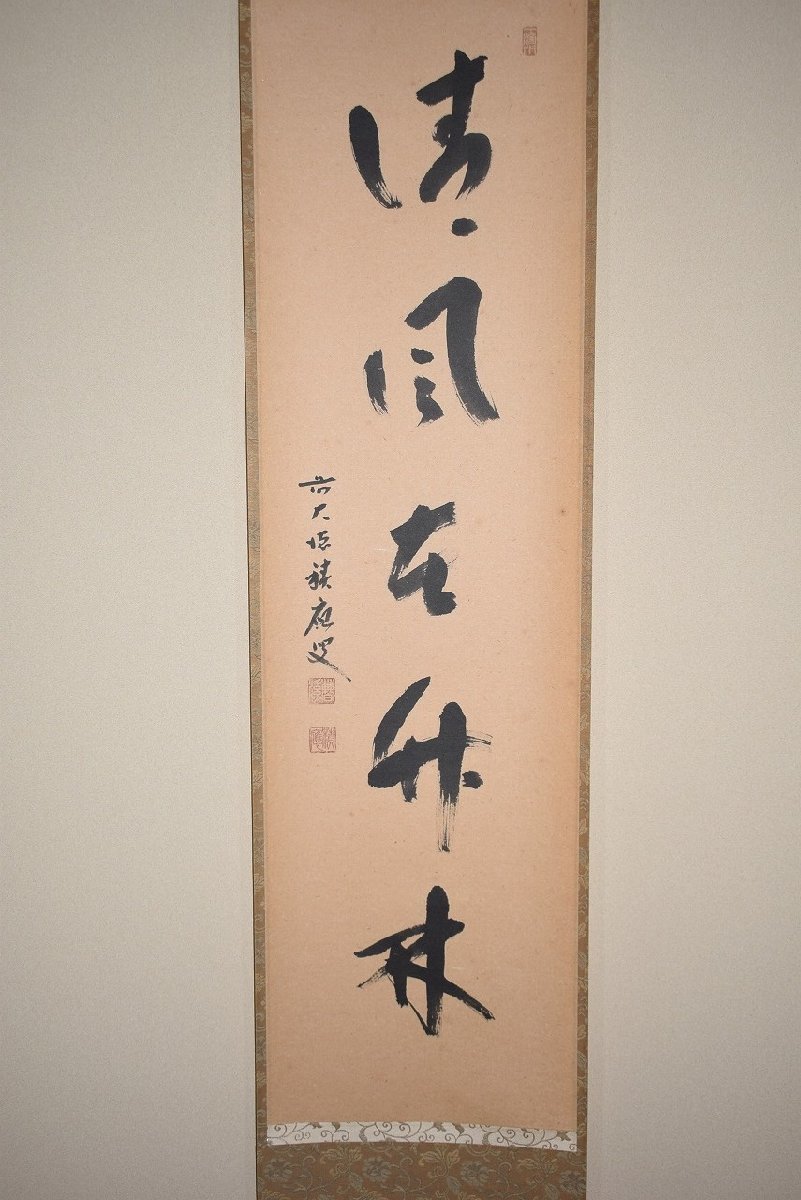 清風在竹林
前大徳積應叟